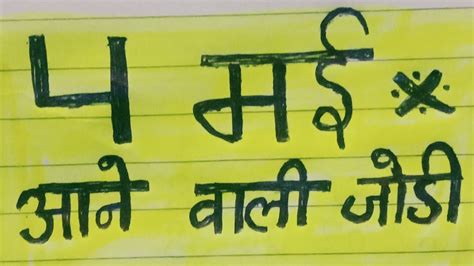 4 मई ※
आने वाली जोडी